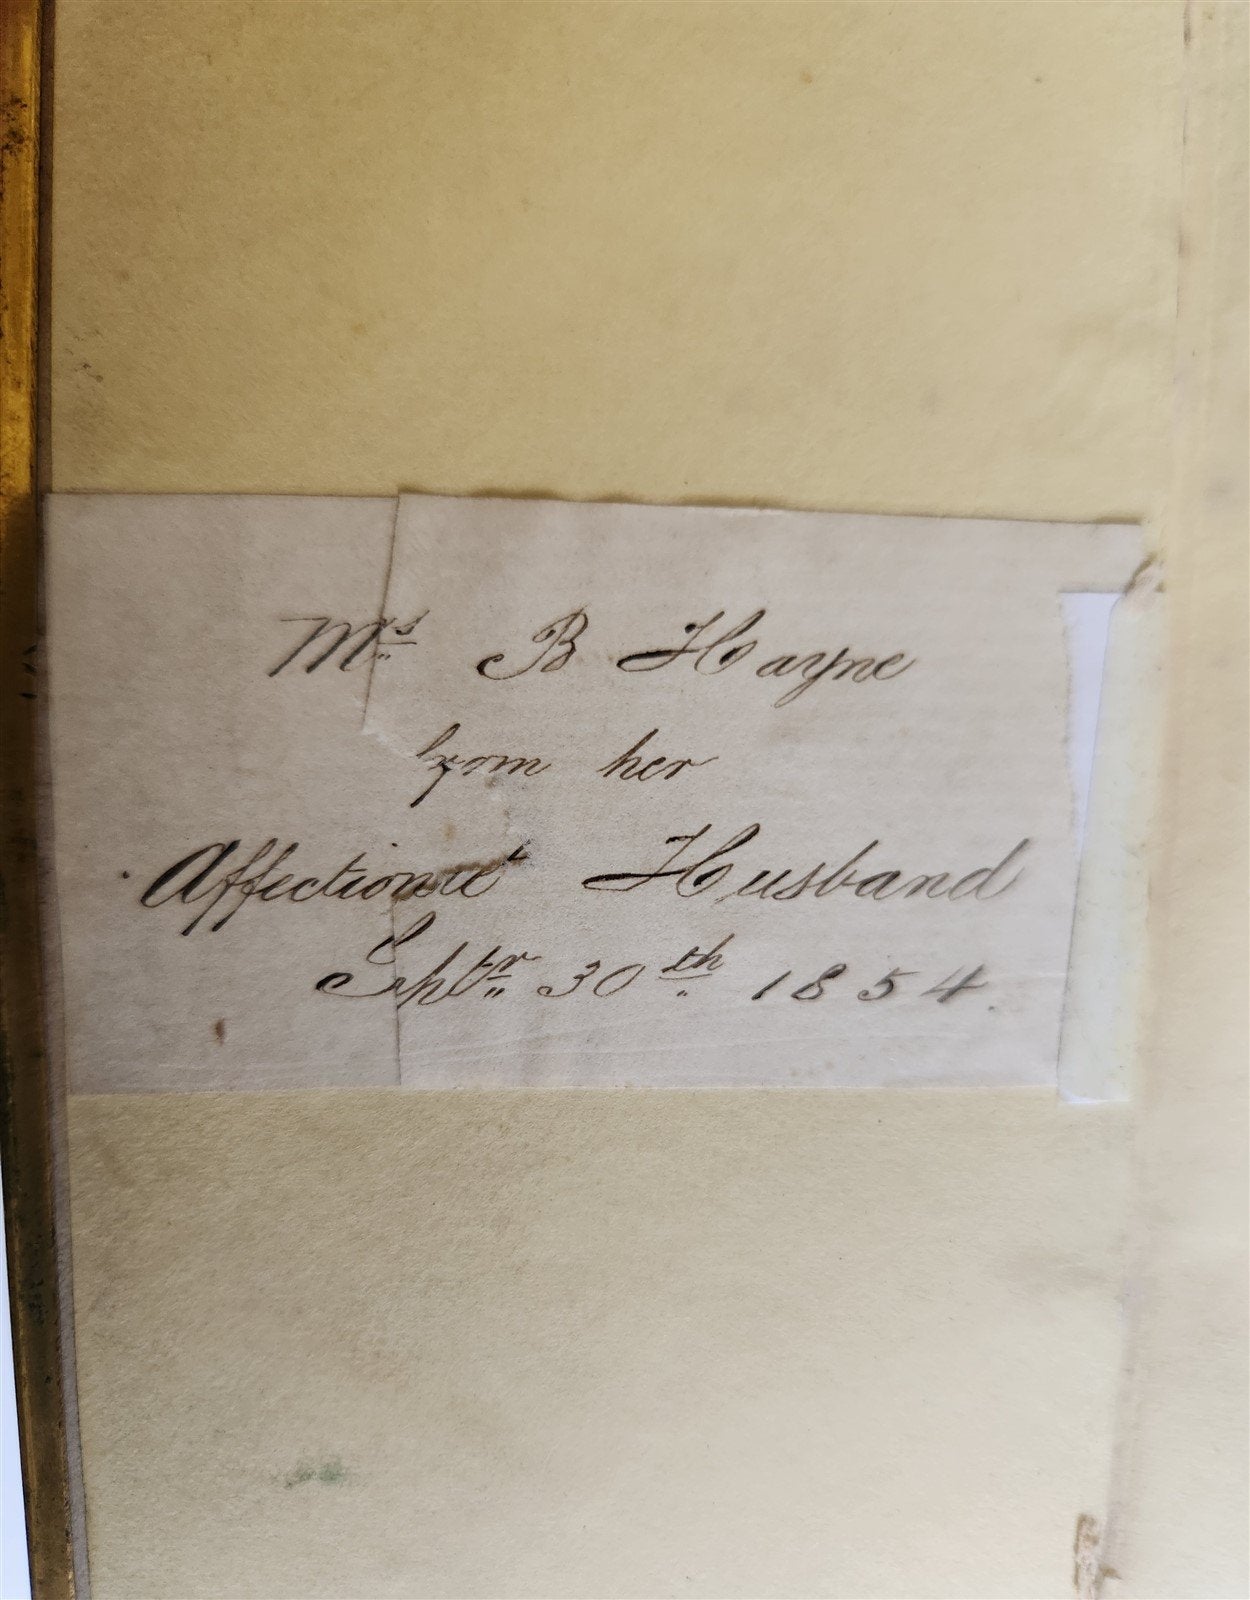 Mrs B Hayne
from her
Affectionate Husband
Septr 30th 1854